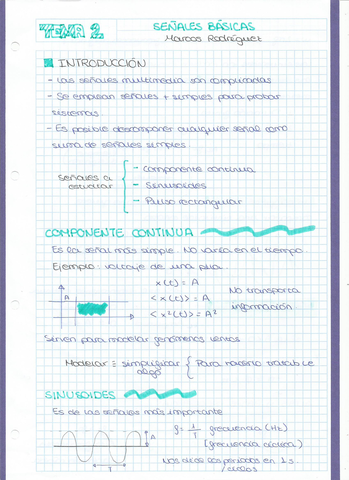 TEMA 2
SEÑALES BÁSICAS
Marcos Rodríguez
INTRODUCCIÓN
- Las señales multimedia son complicadas
- Se emplean señales + simples para probar
sistemas.
- Es posible descomponer cualquier señal como
suma de señales simples.
Señales a
estudiar
- Componente continua
- Sinusoides
- Pulso rectangular
COMPONENTE CONTINUA
Es la señal más simple. No varía en el tiempo.
Ejemplo: voltaje de una pila
A
x(t) = A
<x(t)> = A
<x²(t)> = A²
No transporta
información
Sirven para modelar fenómenos lentos
Modelar ≡ simplificar
algo
Para hacerlo tratable
SINUSOIDES
Es de las señales más importante
A
T
f = 1/T frecuencia (Hz)
(frecuencia cíclica)
Nos dice los periodos en 1 s.
/ciclos